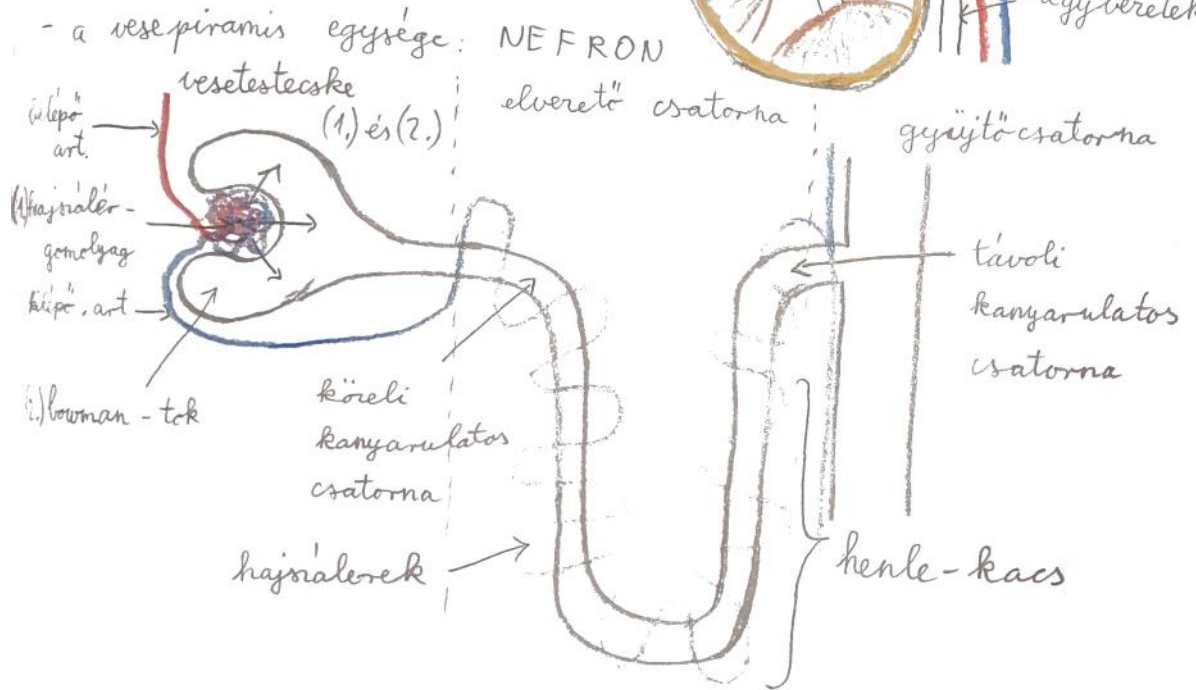 - a vesepiramis egysége: NEFRON
ágyveretek
vesetestecske
(1.) és (2.)
elvezető csatorna
gyűjtőcsatorna
belépő
art.
(1.) hajszálér-
gomolyag
kilépő. art
(2.) bowman - tok
közeli
kanyarulatos
csatorna
távoli
kanyarulatos
csatorna
hajszálerek
henle - kacs